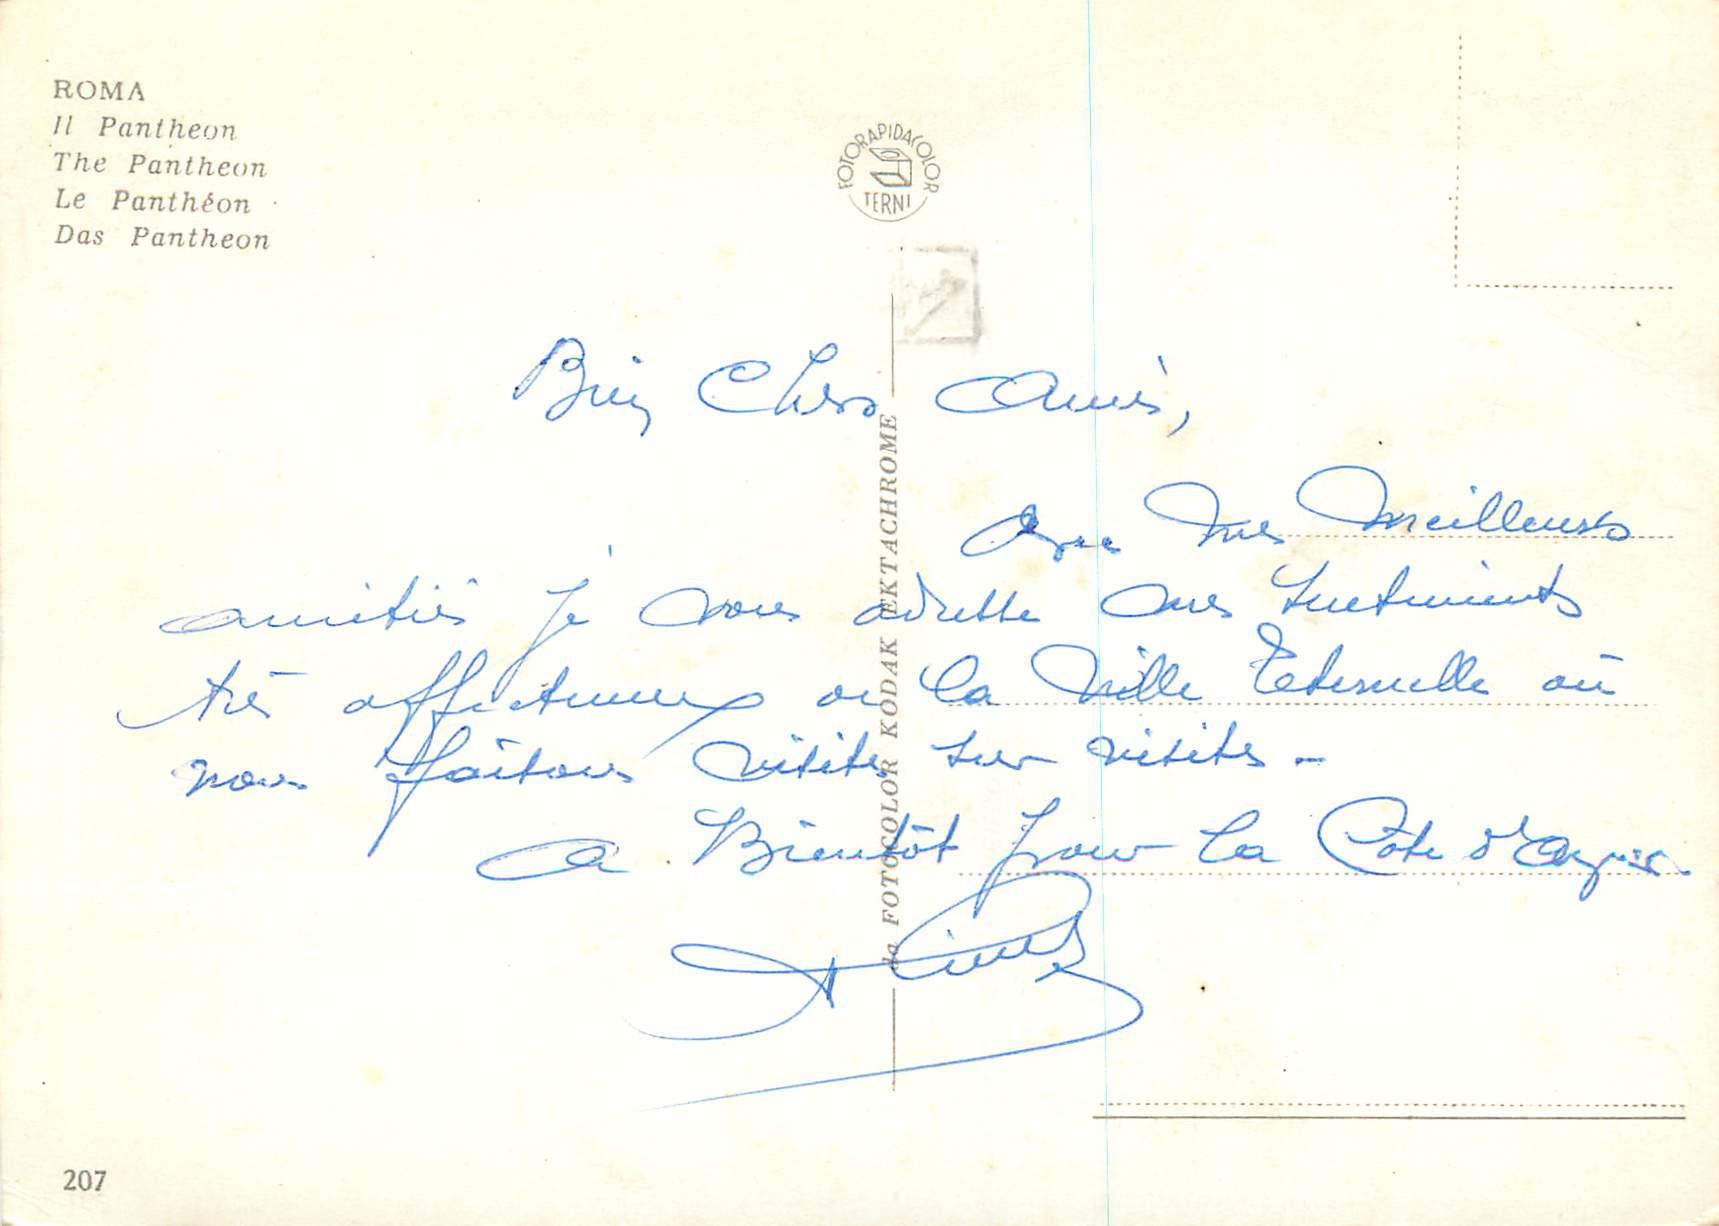 ROMA
Il Pantheon
The Pantheon
Le Panthéon
Das Pantheon
FOTORAPIDACOLOR
TERNI
da FOTOCOLOR KODAK EKTACHROME
Bien Chers Amis,
Avec mes meilleures
amitiés je vous adresse mes sentiments
très affectueux de la Ville Eternelle où
nous faisons visites sur visites -
A Bientôt pour la Côte d'Azur
207